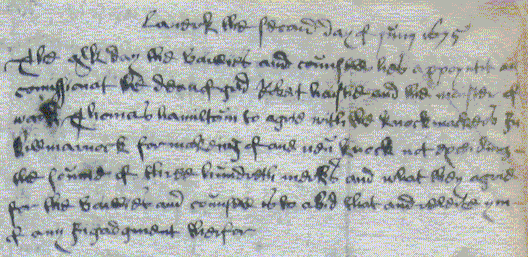 Lanerk the second day of Junii 1675
The qlk day the Baileis and counsell hes appoyntit
comissionat the deane of gild Robert and the master of
Thomas Hamiltoun to agrie with the knock makers in
Killmarnock for makeing of ane new knock not exceiding
the soume of thrie hundreth merks and what they agrie
for the Baileis and counsell is to abyd that and releive ym
of any ingadgment therfor